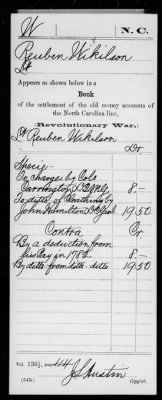 W N.C.
Reuben Wikilson
Lt
Appears as shown below in a
Book
of the settlement of the old money accounts of
the North Carolina line,
Revolutionary War.
Lt Reuben Wikilson
Dr.
Specie
To charge by Cols
Carrington 8.—
To ditto, of Cloathing by
John Hamilton 19.50
Contra Cr
By a deduction from
his Pay in 1782 8.—
By ditto ditto ditto 19.50
Vol. 136½, 444
J S Austin
(549) Copyist.